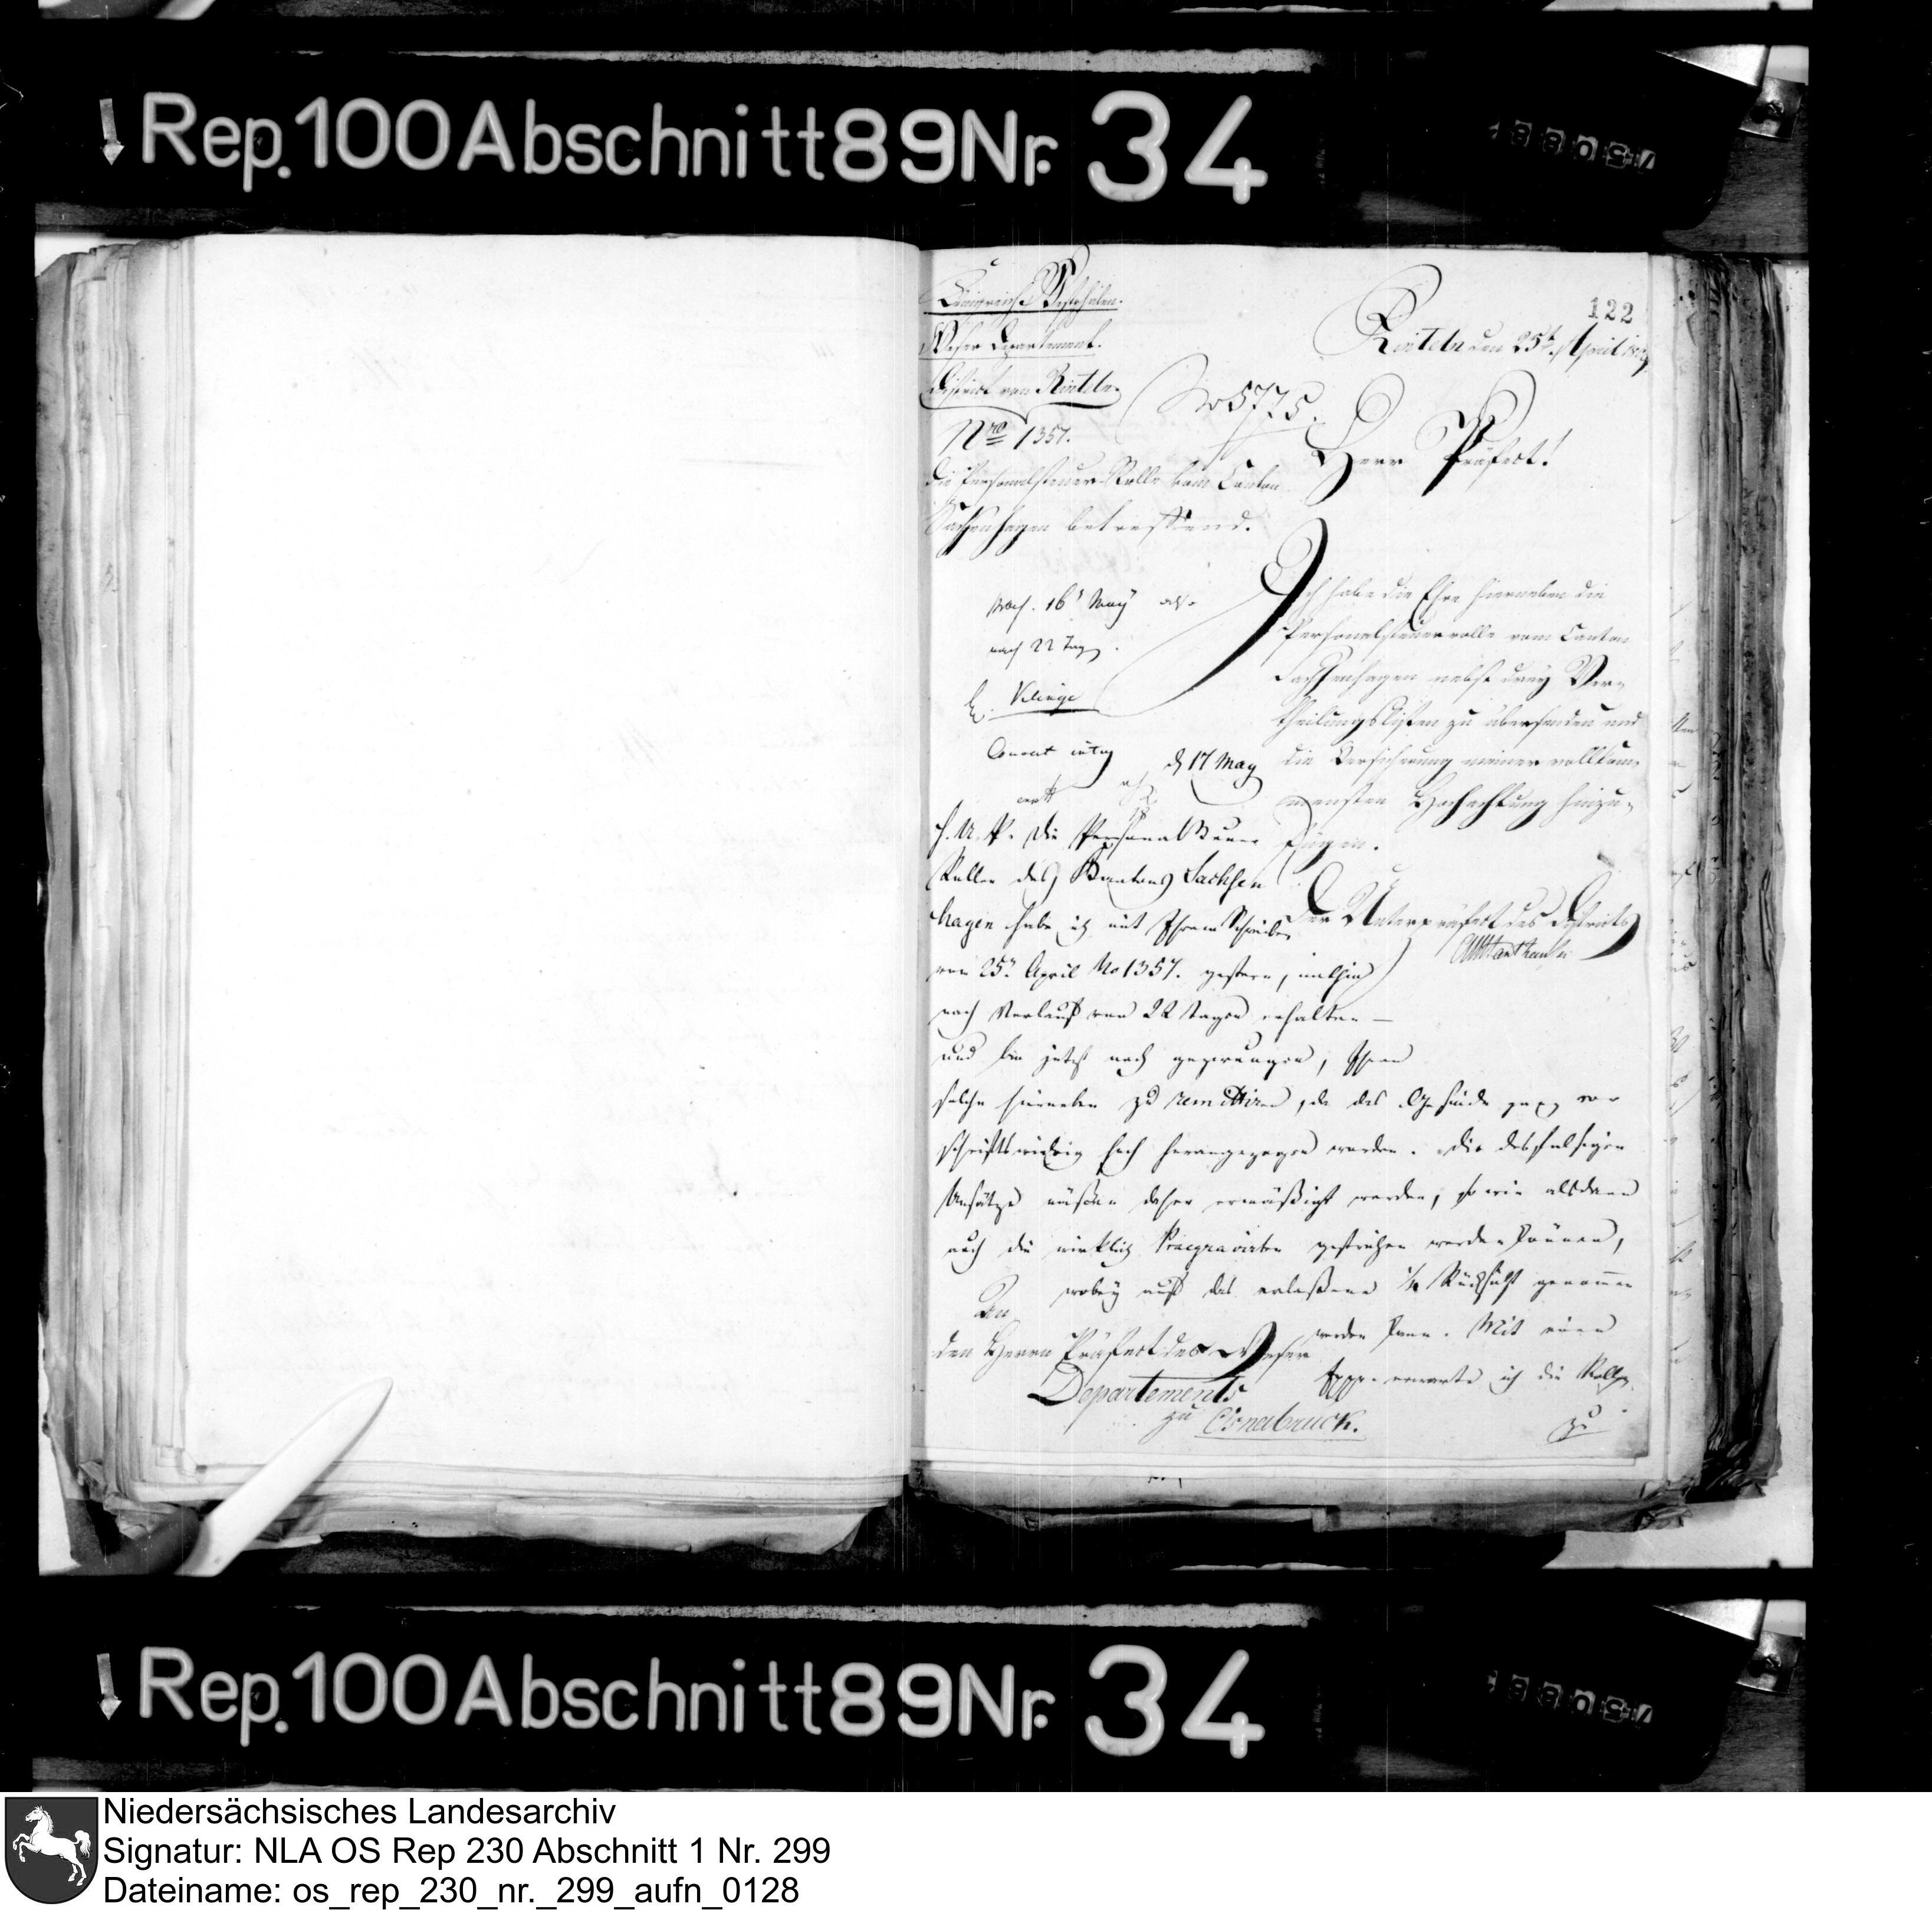 Rep. 100 Abschnitt 89 Nr. 34
122
Königreich Westphalen.
Weser Departement.
District von Rinteln
Nro 1357.
Die Personalsteuer-Rolle vom Canton
Sachsenhagen betreffend.
Rinteln den 25t. April
No 5775.
Herr Präfect!
Ich habe die Ehre hierneben die
Personalsteuerrolle vom Canton
Sachsenhagen nebst drey Ver-
theilungslisten zu übersenden und
die Versicherung meiner vollkom-
mensten Hochachtung hinzu-
fügen.
Der Unterpräfect des Districts
16t May
nach 22 Tag
d 17 May
H. U. P. Die Personalsteuer
Rolle des Kantons Sachsen
hagen habe ich mit Ihrem Schreiben
vom 25t April No 1357. gestern, mithin
nach Verlauf von 22 Tagen erhalten —
und bin jetzt noch gezwungen, Ihnen
solche hierneben zu remittiren, da das Gesinde ganz vor
schriftswidrig hoch herangezogen worden. Die desfalsigen
Ansätze müssen daher ermäßigt werden, so wie alsdann
auch die wirklich Praegravirten gestrichen werden können,
wobey auf das erlaßene 1/4 Rücksicht genommen
werden kann. Mit einem
erwarte ich die Rolle
zu
An
den Herrn Präfect des Weser
Departements
zu Osnabruck.
Rep. 100 Abschnitt 89 Nr. 34
Niedersächsisches Landesarchiv
Signatur: NLA OS Rep 230 Abschnitt 1 Nr. 299
Dateiname: os_rep_230_nr._299_aufn_0128